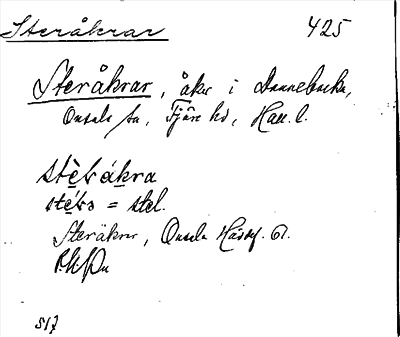 Steråkrar 425
Steråkrar, åker i Dannebacka,
Onsala sn, Fjäre hd, Hall. l.
stèrákra
stérs = stel.
Steråkrar, Onsala
517